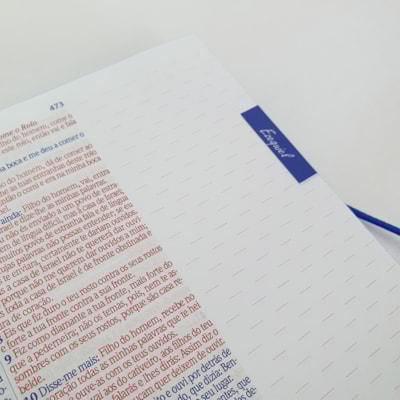 473
ome o Rolo
lho do homem, come o
este rolo, então vai e fala
a boca e me deu a comer o
o do homem, dá de comer ao
as tuas entranhas deste rolo
ão o comi e era na minha boca
el.
ainda: Filho do homem, vai, entra
srael e dize-lhe as minhas palavras.
és enviado a um povo de estra-
em difícil, mas à casa de Israel;
muitos povos de estranha fala e de língua
cujas palavras não possas entender; se eu
enviara, certamente te dariam ouvidos.
a casa de Israel não te quererá dar ouvidos,
porque não me querem dar ouvidos a mim;
toda a casa de Israel é de fronte obstinada e
ura de coração.
Eis que fiz duro o teu rosto contra os seus rostos
forte a tua fronte contra a sua fronte.
9 Fiz como diamante a tua fronte, mais forte do
que a pederneira; não os temas, pois, nem te as-
sombres com os seus rostos, porque são casa re-
belde.
10 Disse-me mais: Filho do homem, recebe no
coração todas as minhas palavras que te hei
ouve-as com os teus ouvidos.
vai aos do cativeiro, aos filhos do teu
falarás e lhes dirás: Assim diz o
quer deixem de ouvir.
e ouvi por detrás de
do, que dizia: Ben-
seu lugar.
Ezequiel